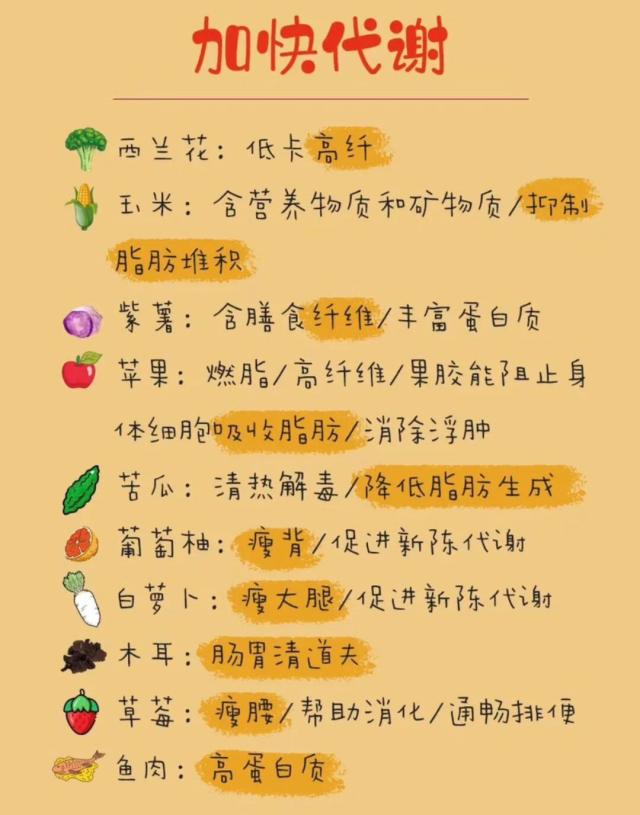 加快代谢
西兰花：低卡高纤
玉米：含营养物质和矿物质/抑制
脂肪堆积
紫薯：含膳食纤维/丰富蛋白质
苹果：燃脂/高纤维/果胶能阻止身
体细胞吸收脂肪/消除浮肿
苦瓜：清热解毒/降低脂肪生成
葡萄柚：瘦背/促进新陈代谢
白萝卜：瘦大腿/促进新陈代谢
木耳：肠胃清道夫
草莓：瘦腰/帮助消化/通畅排便
鱼肉：高蛋白质